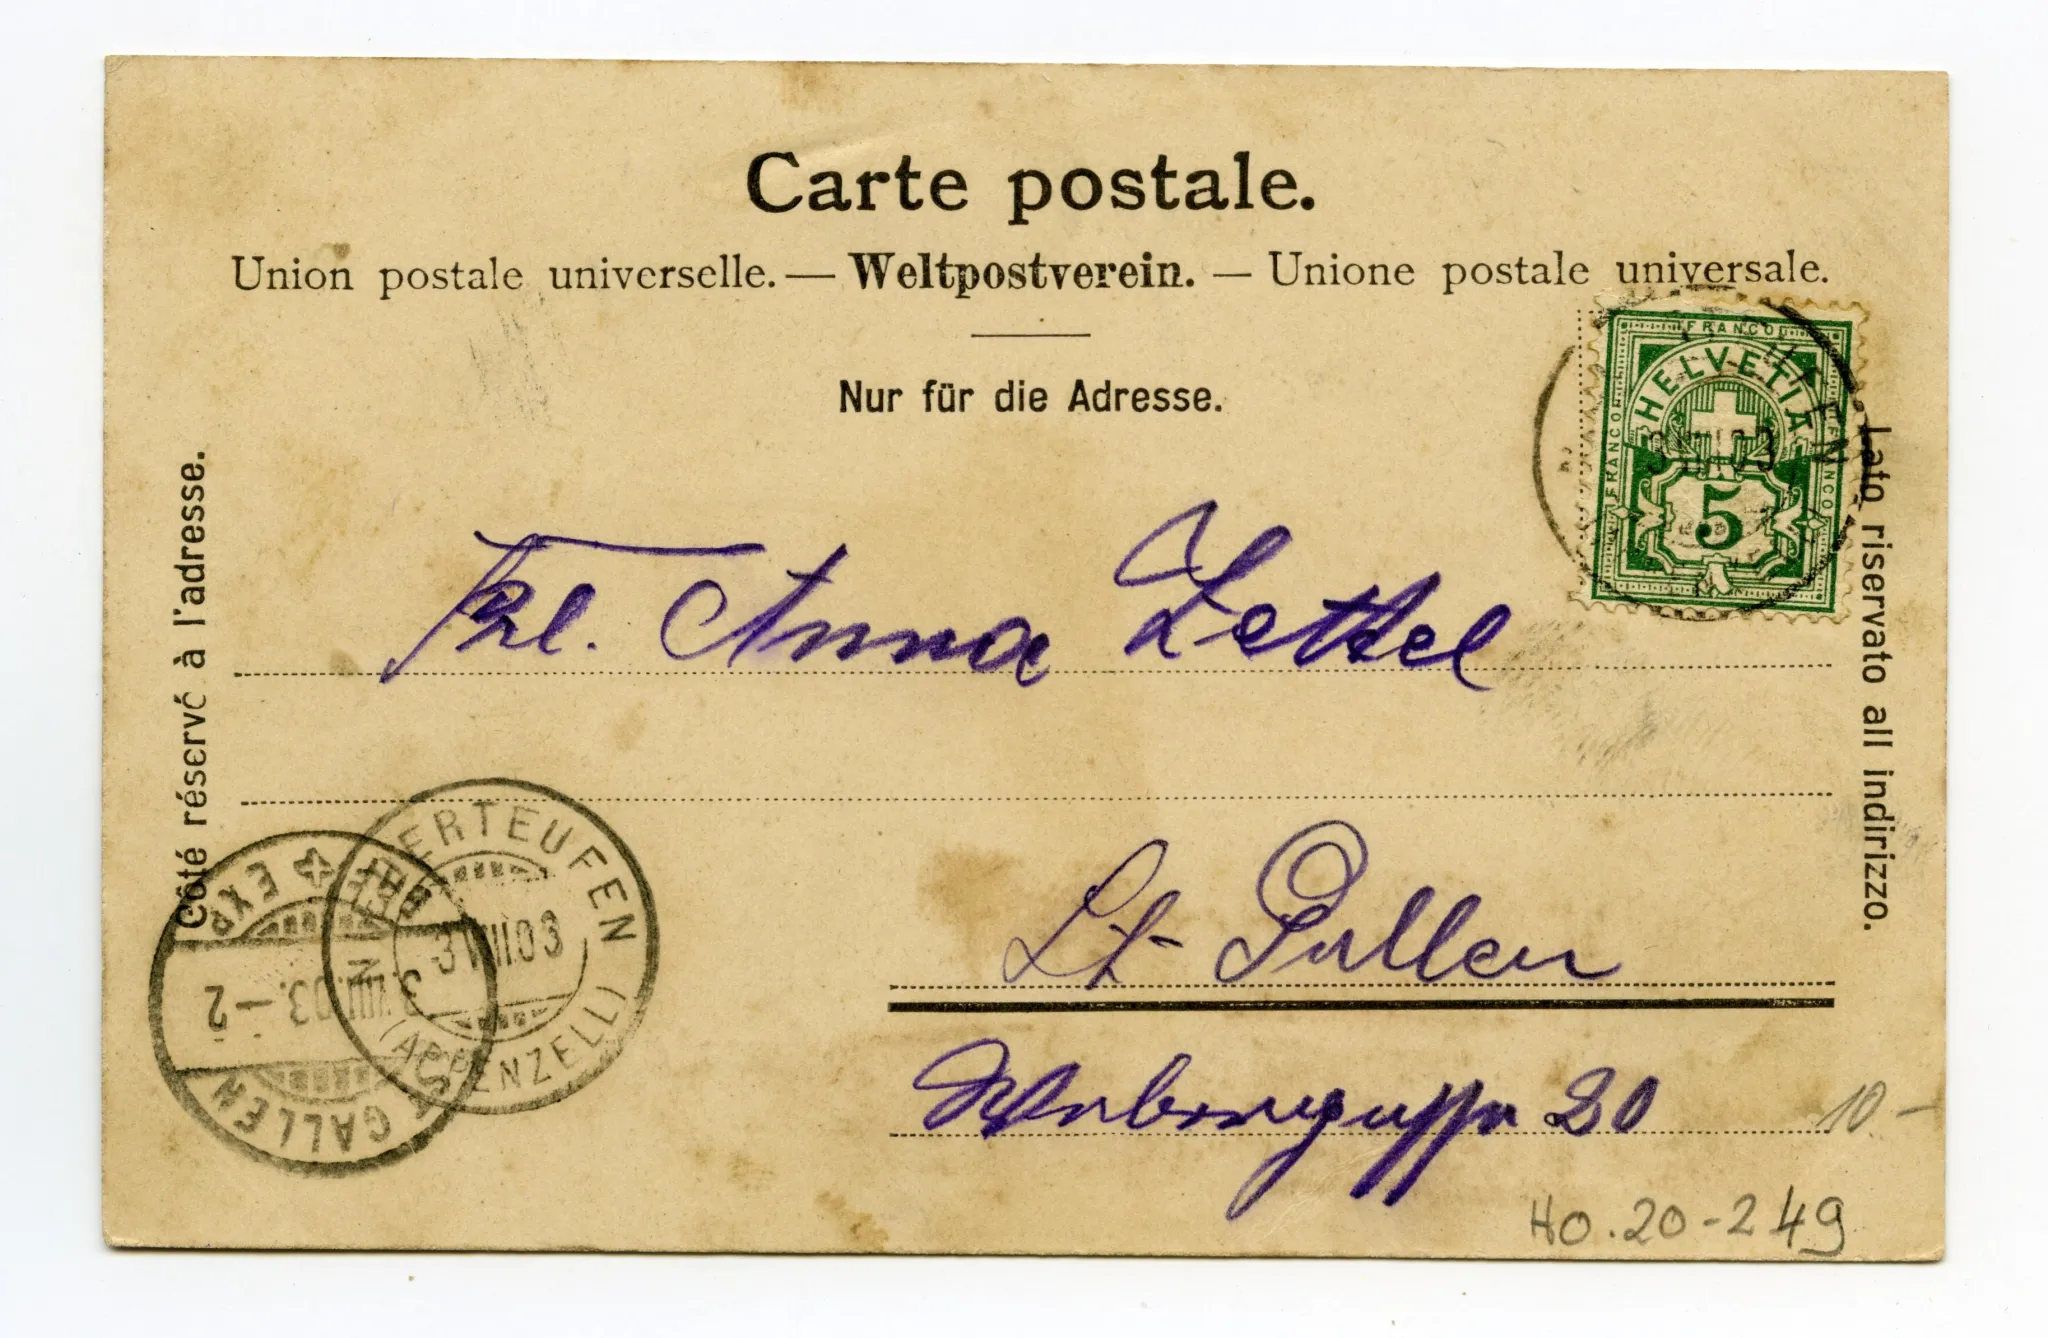 Carte postale.
Union postale universelle. — Weltpostverein. — Unione postale universale.
Nur für die Adresse.
Côté réservé à l'adresse.
Lato riservato all indirizzo.
FRANCO
HELVETIA
FRANCO
FRANCO
5
3 VIII 03
Frl. Anna Zettel
St. Gallen
20
ERTEUFEN
3 VIII 03
(APPENZELL)
BRF. EXP.
3. VIII. 03. – 2
ST. GALLEN
10 –
HO.20-249